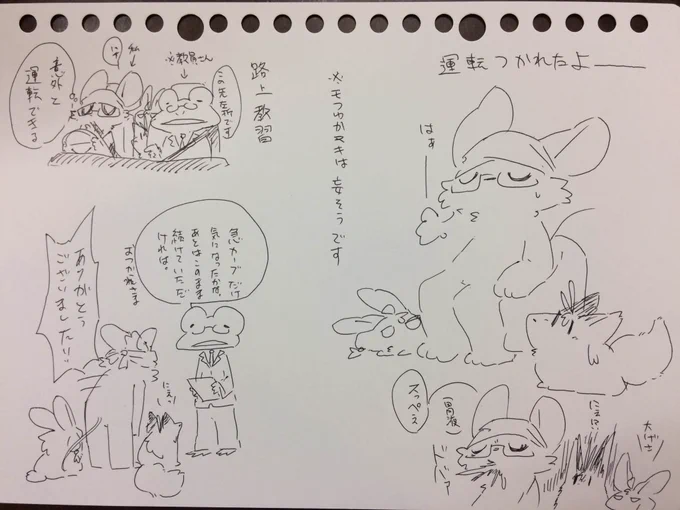 路上教習
※教官さん
私
この先左折です
意外と
運転できる
急カーブだけ
気になったかな。
あとはこのまま
続けていただ
ければ。
おつかれさま
ありがとう
ございました!!
にぇっ
運転つかれたよ――
はぁ――
※モフゆかヌキは妄そうです
(胃液)
スッペぇ
にぇ!?
大げさ